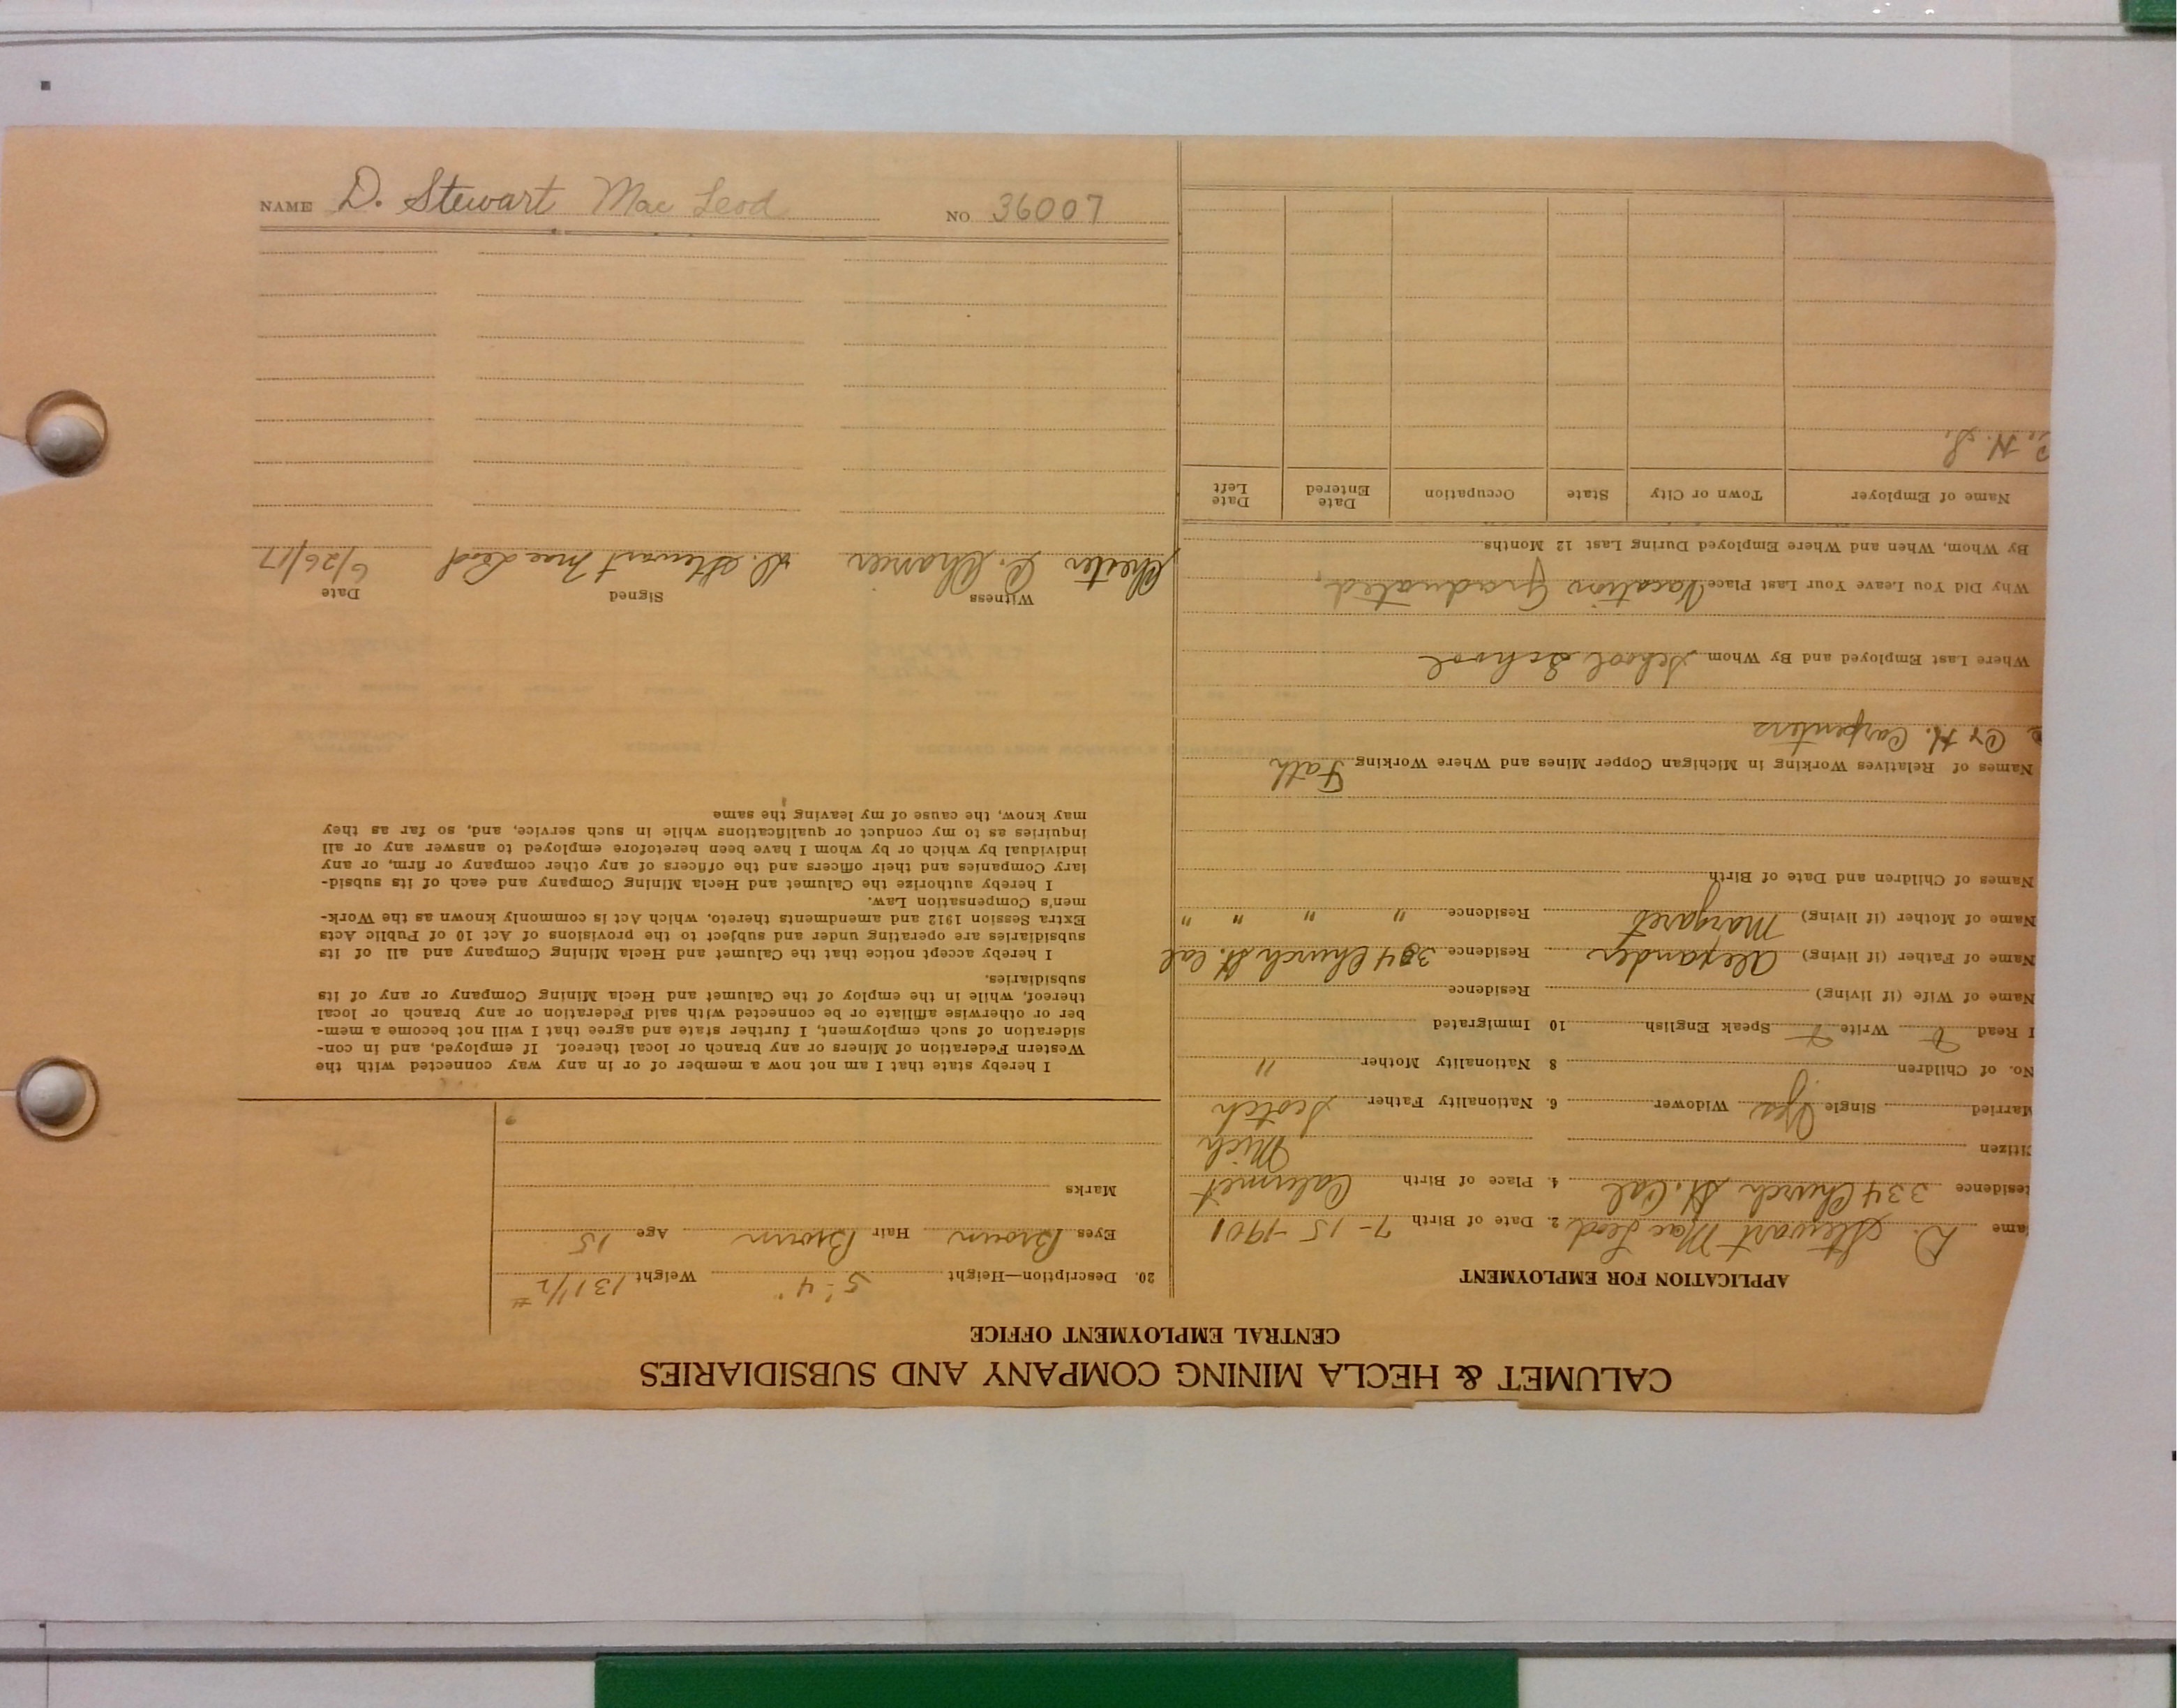 CALUMET & HECLA MINING COMPANY AND SUBSIDIARIES
CENTRAL EMPLOYMENT OFFICE
APPLICATION FOR EMPLOYMENT
ame D. Stewart Mac Leod 2. Date of Birth 7-15-1901
esidence 334 Church St. Cal 4. Place of Birth Calumet
Mich
itizen
Married Single Yes Widower 6. Nationality Father Scotch
No. of Children 8 Nationality Mother "
I Read Write Speak English 10 Immigrated
Name of Wife (if living) Residence
Name of Father (if living) Alexander Residence 334 Church St. Cal
Name of Mother (if living) Margaret Residence " " " "
Names of Children and Date of Birth
Names of Relatives Working in Michigan Copper Mines and Where Working Fath
C & H. Carpenters
Where Last Employed and By Whom School School
Why Did You Leave Your Last Place Vacation Graduated.
By Whom, When and Where Employed During Last 12 Months
Name of Employer Town or City State Occupation Date Entered Date Left
H. S.
20. Description—Height 5' 4" Weight 131 1/2 #
Eyes Brown Hair Brown Age 15
Marks
I hereby state that I am not now a member of or in any way connected with the
Western Federation of Miners or any branch or local thereof. If employed, and in con-
sideration of such employment, I further state and agree that I will not become a mem-
ber or otherwise affiliate or be connected with said Federation or any branch or local
thereof, while in the employ of the Calumet and Hecla Mining Company or any of its
subsidiaries.
I hereby accept notice that the Calumet and Hecla Mining Company and all of its
subsidiaries are operating under and subject to the provisions of Act 10 of Public Acts
Extra Session 1912 and amendments thereto, which Act is commonly known as the Work-
men's Compensation Law.
I hereby authorize the Calumet and Hecla Mining Company and each of its subsid-
iary Companies and their officers and the officers of any other company or firm, or any
individual by which or by whom I have been heretofore employed to answer any or all
inquiries as to my conduct or qualifications while in such service, and, so far as they
may know, the cause of my leaving the same
Witness Signed Date
D. Stewart Mac Leod 6/26/17
NAME D. Stewart Mac Leod NO. 36007